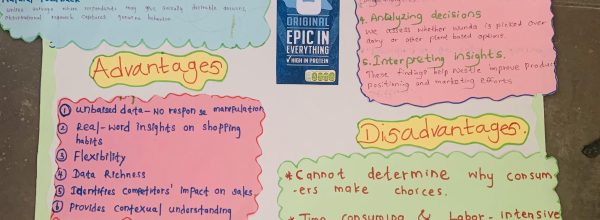 Unlike surveys where respondents may give socially desirable answers,
observational research captures genuine behavior.
ORIGINAL
EPIC IN
EVERYTHING
HIGH IN PROTEIN
4. Analyzing decisions
We assess whether wunda is picked over
dairy or other plant based options.
5. Interpreting insights.
These findings help Nestle improve Product
positioning and marketing efforts
Advantages
1 unbaised data - No response manipulation
2 Real-word insights on shopping
habits
3 Flexibility
4 Data Richness
5 Identifies competitors' impact on sales
6 provides contexual understanding
Disadvantages.
* Cannot determine why consum
-ers make choices.
* Time consuming & Labor-intensive